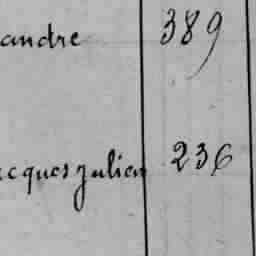 andre 389
cques julien 236